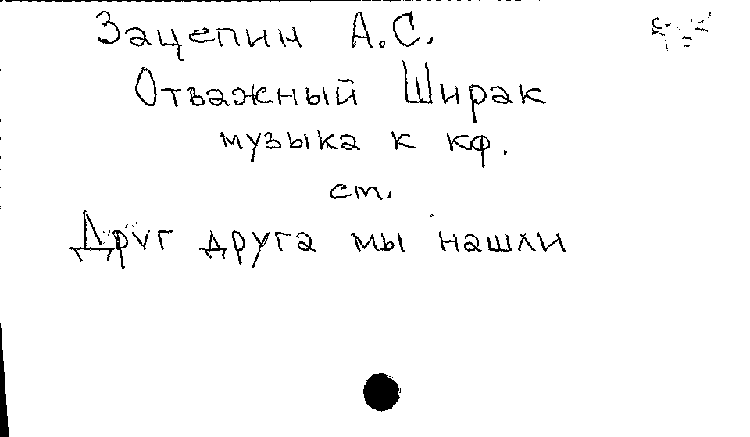 Зацепин А.С.
Отважный Ширак
музыка к кф.
ст.
Друг друга мы нашли